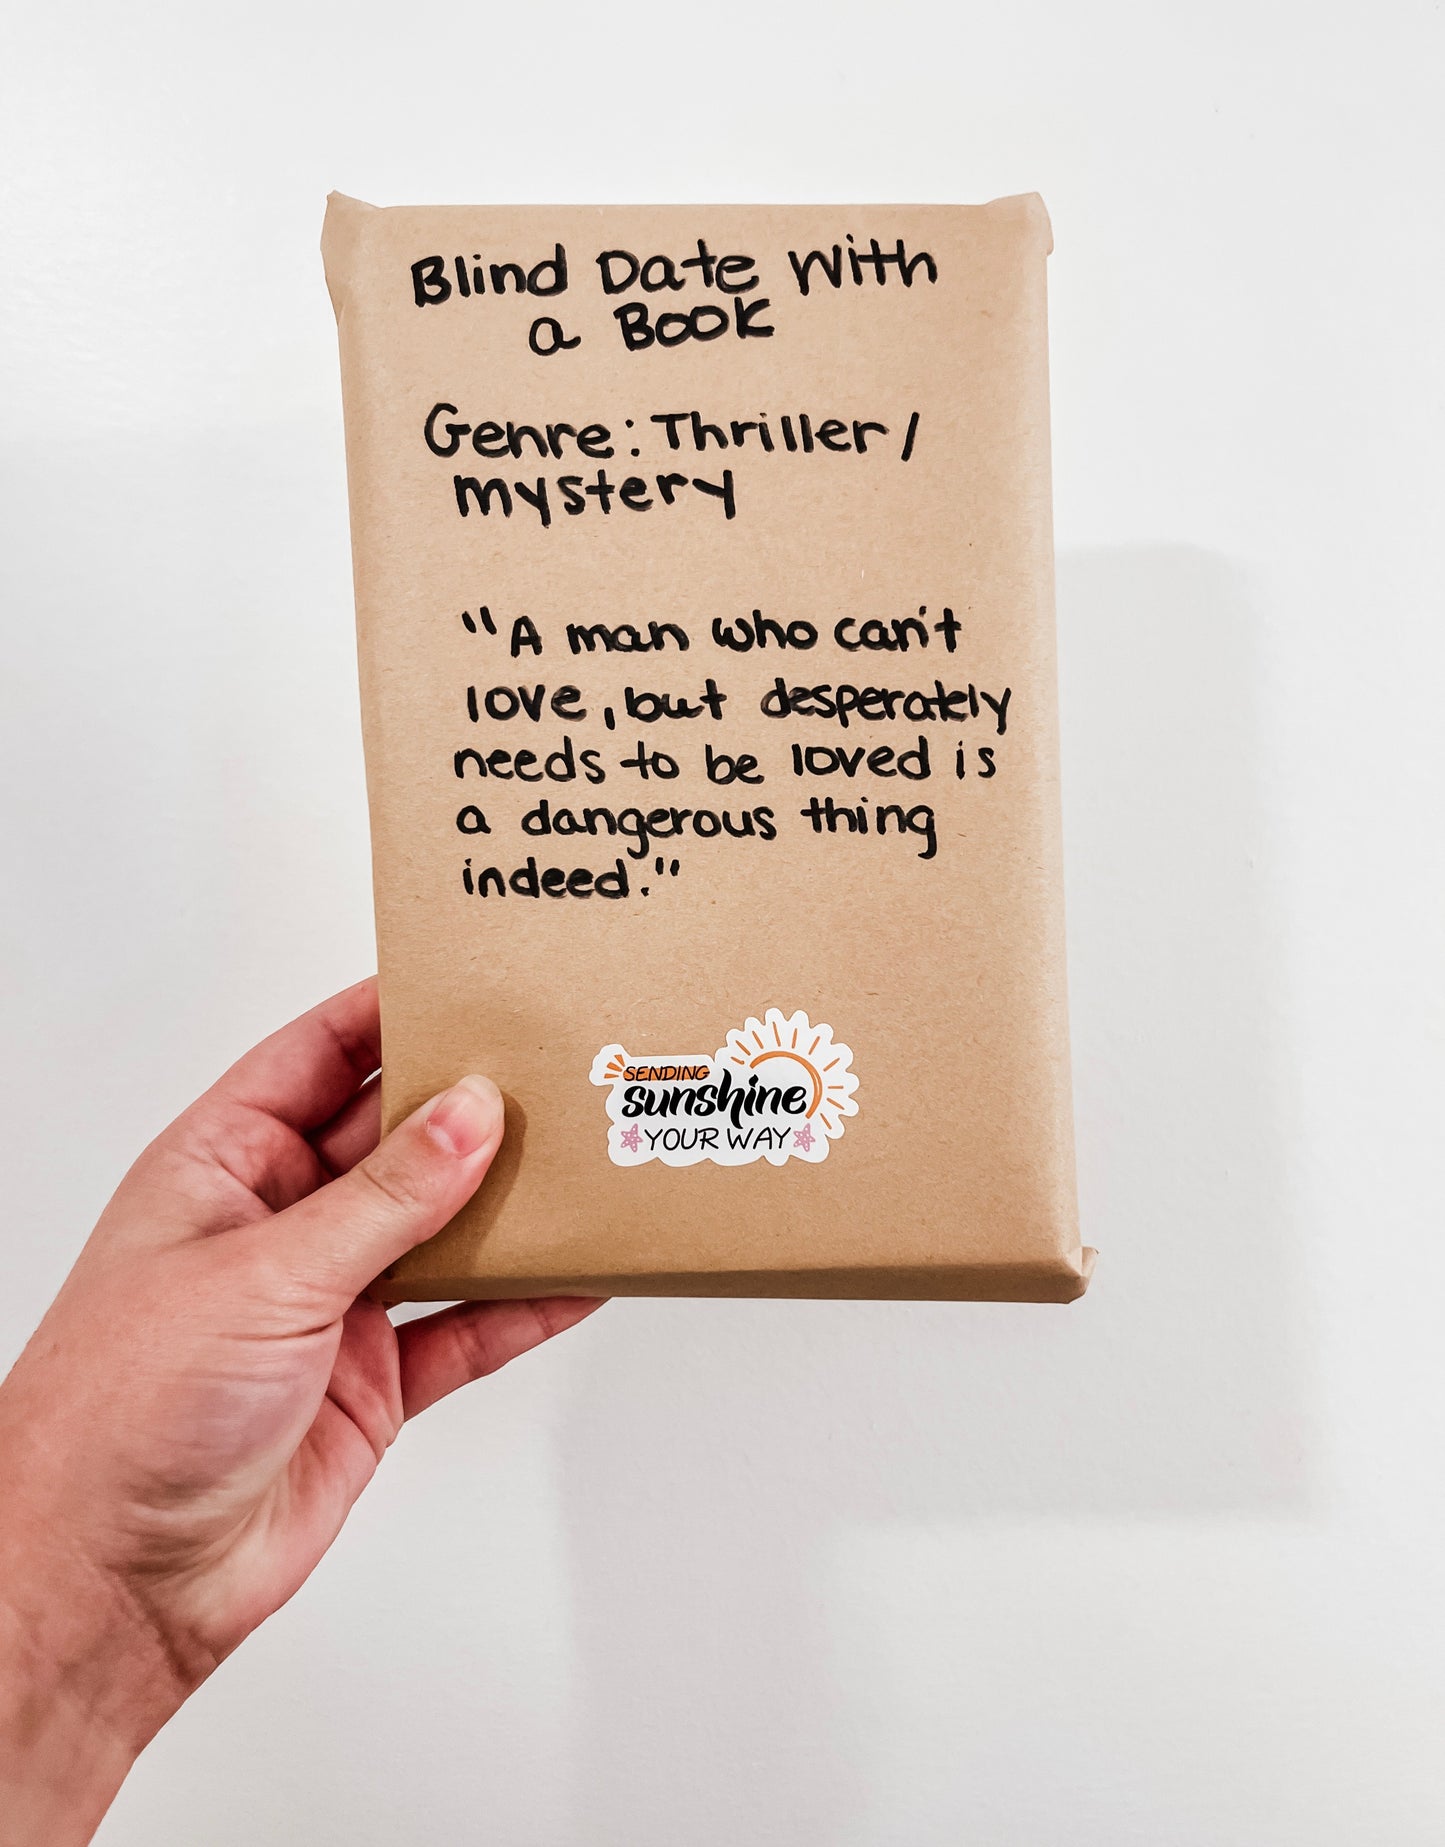 Blind Date With
a Book
Genre: Thriller/
mystery
"A man who can't
love, but desperately
needs to be loved is
a dangerous thing
indeed."
SENDING
sunshine
YOUR WAY